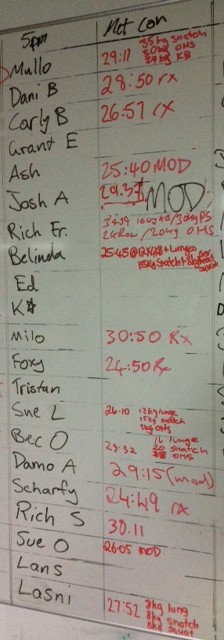 5pm Met Con
Mullo 29:17 35kg snatch
OHS
KB
Dani B 28:50 rx
Carly B 26:57 rx
Grant E
Ash 25:40 MOD
Josh A MOD
Rich Fr.
Belinda
Ed
K
Milo 30:50 Rx
Foxy 24:50 Rx
Tristan
Sue L 26:10 12kg lunge
15kg snatch
OHS
Bec O 29:32 16 lunge
20 snatch
OHS
Damo A 29:15 (mod)
Scharfy 24:49 rx
Rich S 30.11
Sue O 26:05 MOD
Lans
Lasni 27:52 8kg lung
8kg snatch
8kg squat